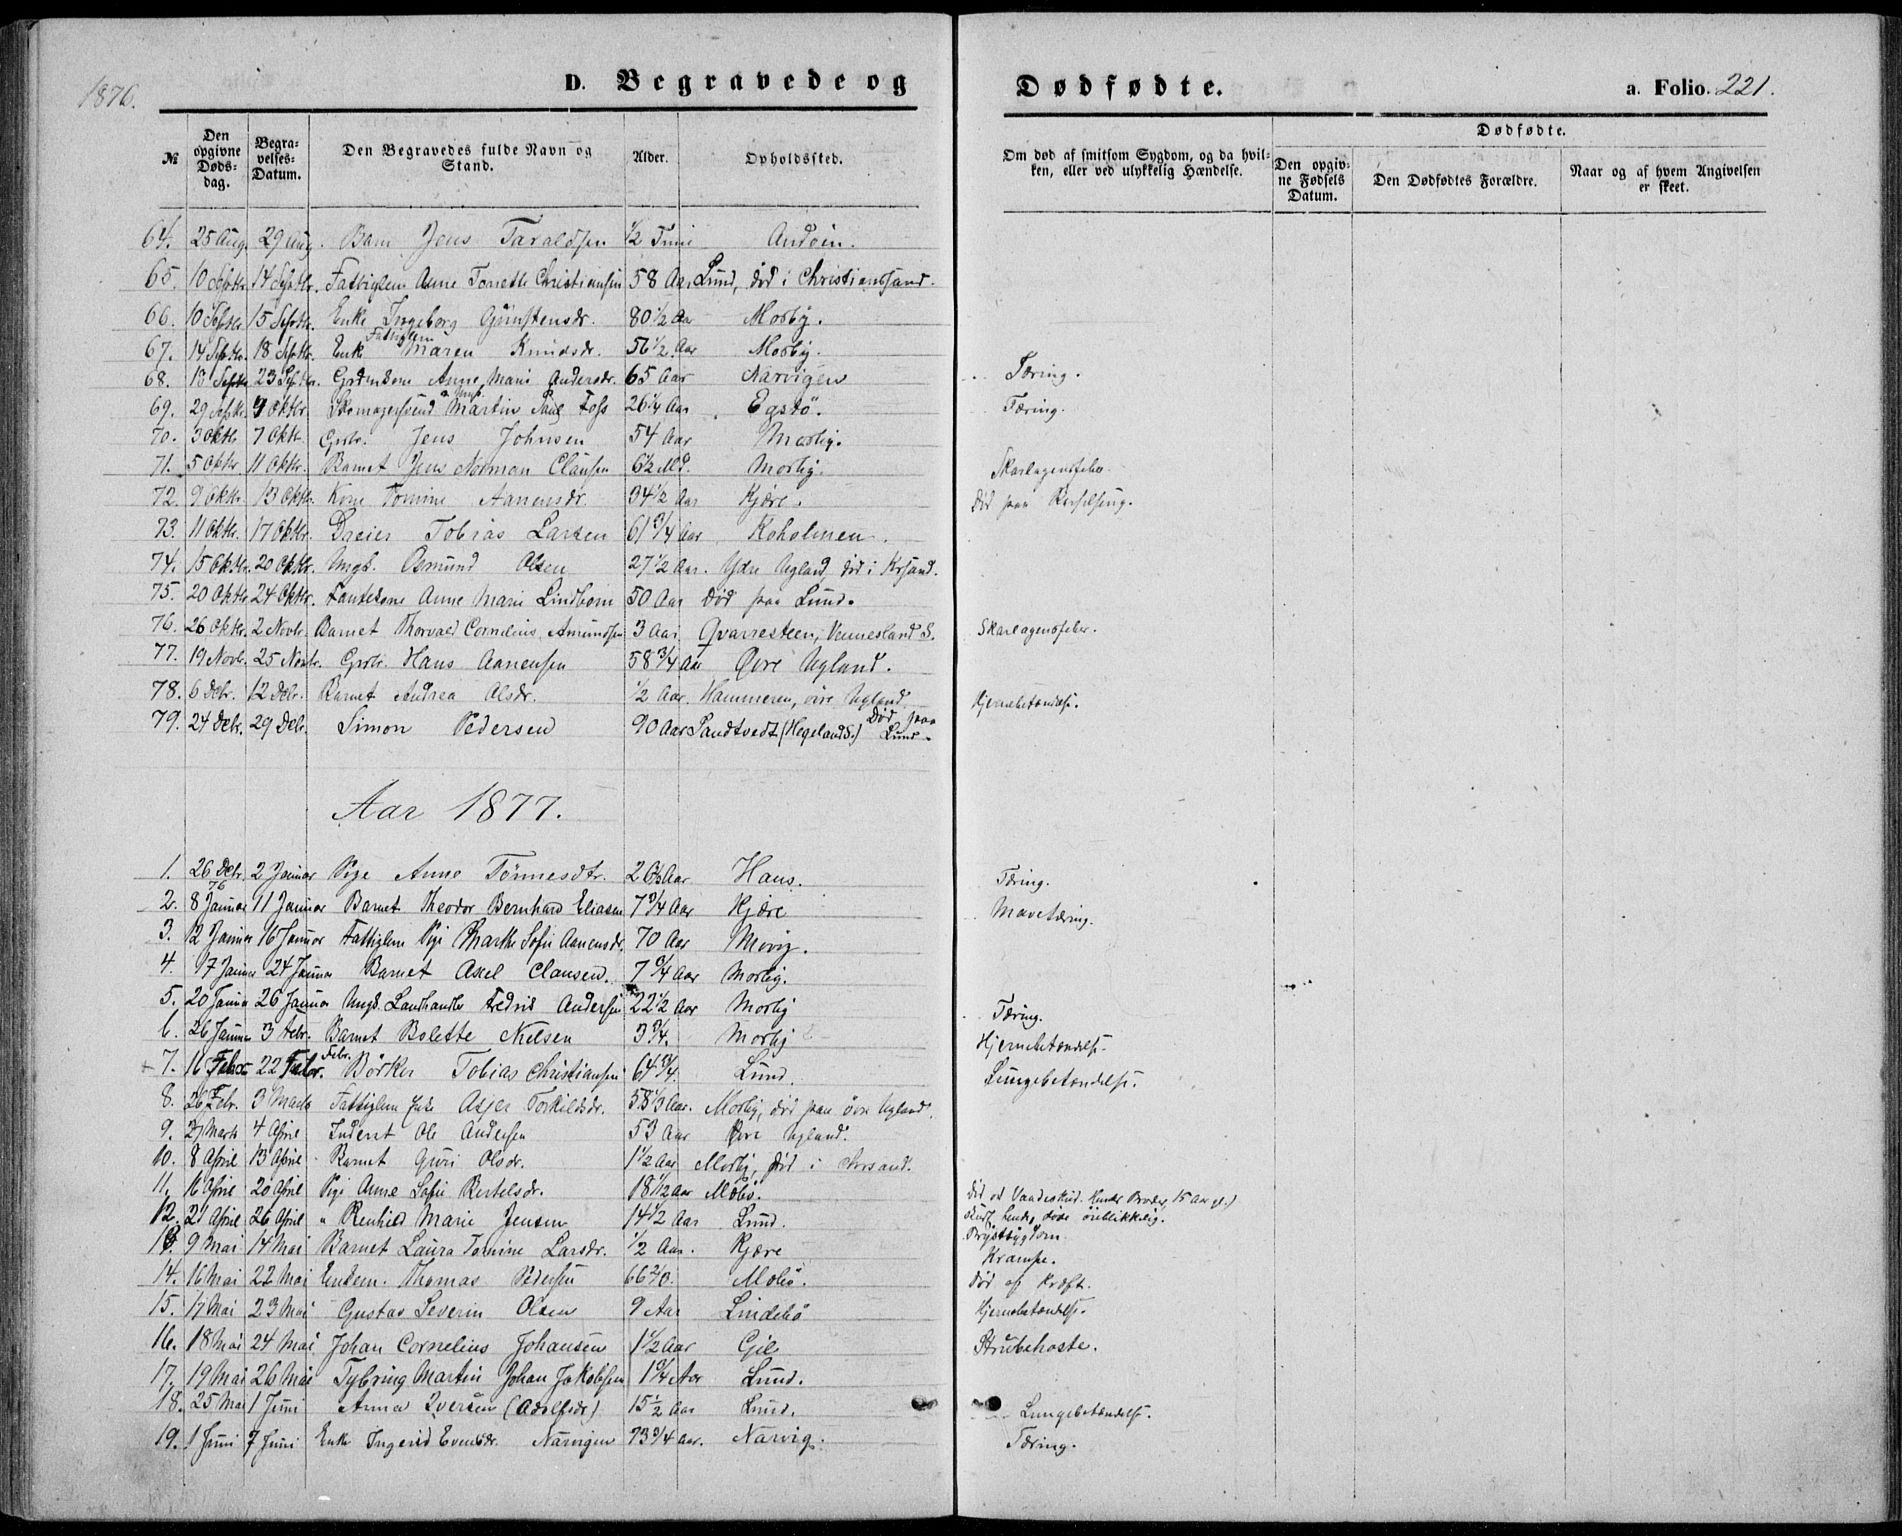 1876.
D. Begravede og Dødfødte.
a. Folio. 221.
№
Den opgivne Døds-dag.
Begra-velses-Datum.
Den Begravedes fulde Navn og Stand.
Alder.
Opholdssted.
Om død af smitsom Sygdom, og da hvil-ken, eller ved ulykkelig Hændelse.
Dødfødte.
Den opgiv-ne Fødsels Datum.
Den Dødfødtes Forældre.
Naar og af hvem Angivelsen er skeet.
64. 25 Aug. 29 Aug. Barn Jens Taraldsen 1/2 Time Andöen.
65. 10 Septbr. 14 Septbr. Fattiglem Anne Tonette Christiansen 58 Aar Lund, död i Christianssand.
66. 10 Septbr. 15 Septbr. Enke Ingeborg Gunstensdr. 80 1/2 Aar Mosby.
67. 14 Septbr. 18 Septbr. Enke Fattiglem Maren Knudsdr. 56 1/2 Aar Mosby.
68. 18 Septbr. 23 Septbr. Gaardmkone Anne Marie Andersdr. 65 Aar Narvigen Tæring.
69. 29 Septbr. 4 Oktbr. Skomagersvend Ungk. Martin Paul Foss 26 1/4 Aar Egstö. Tæring.
70. 3 Oktb. 7 Oktb. Grbr. Jens Johnsen 54 Aar Mosby.
71. 5 Oktbr. 11 Oktbr. Barnet Jens Norman Clausen 6 1/2 Md. Mosby. Skarlagensfeber.
72. 9 Oktbr. 13 Oktbr. Kone Tomine Aanensdr. 34 1/2 Aar Kjære. Död paa Barselseng.
73. 11 Oktbr. 17 Oktbr. Dreier Tobias Larsen 61 3/4 Aar Koholmen.
74. 15 Oktbr. 20 Oktbr. Ungk. Osmund Olsen 27 1/2 Aar. Ydre Ugland, död i Krsand.
75. 20 Oktbr. 24 Oktbr. Fantekone Anne Marie Lindbom 50 Aar Död paa Lund.
76. 26 Oktbr. 2 Novbr. Barnet Thorvald Cornelius Amundsen 3 Aar Qvarresteen, Vennesland S. Skarlagensfeber.
77. 19 Novbr. 25 Novbr. Grbr. Hans Aanensen 58 3/4 Aar Øvre Ugland.
78. 6 Debr. 12 Debr. Barnet Andrea Olsdr. 1/2 Aar. Hammeren, övre Ugland Hjernebetændelse.
79. 24 Debr. 29 Debr. Simon Pedersen 90 Aar Sandtvedt (Hegeland S.) Död paa Lund.
Aar 1877.
1. 26 Debr. 76 2 Januar Pige Anne Tönnesdtr. 26 Aar Haus. Tæring.
2. 8 Januar 11 Januar Barnet Theodor Bernhard Eliasen 7 3/4 Aar Kjære Mavetæring.
3. 12 Januar 16 Januar Fattiglem Pige Marthe Sofie Aanensdr. 70 Aar Movig.
4. 17 Januar 24 Januar Barnet Axel Clausen. 7 3/4 Aar Mosby.
5. 20 Januar 26 Januar Ungk. Landhandler Fredrik Andersen 22 1/2 Aar Mosby Tæring.
6. 26 Januar 3 Febr. Barnet Bolette Nielsen 3 3/4. Mosby Hjernebetændelse.
7. 16 Febr. 22 Febr. Febr. Bödker Tobias Christiansen 64 3/4. Lund. Lungebetændelse.
8. 26 Febr. 3 Marts Fattiglem Enke Asjer Torkildsdr. 58 1/3 Aar. Mosby, död paa övre Ugland.
9. 27 Marts 4 April Inderst Ole Andersen 53 Aar Øvre Ugland.
10. 8 April 13 April Barnet Guri Olsdr. 1 1/2 Aar Mosby, död i Chrsand.
11. 16 April 20 April Pige Anne Sofie Bertelsdr. 18 1/2 Aar Möbö. Död ved Vaadeskud. Hendes Broder, 15 Aar gl.)
12. 21 April 26 April " Renhild Marie Jensen 14 1/2 Aar Lund. skudt hende, döde öieblikkelig. Brystsygdom.
13. 9 Mai 14 Mai Barnet Laura Tomine Larsdr. 1/2 Aar. Kjære Krampe.
14. 16 Mai 22 Mai Enkem. Thomas Pedersen 66 Möbö. Död af Kræft.
15. 17 Mai 23 Mai Gustav Severin Olsen 9 Aar Lindebö Hjernebetændelse.
16. 18 Mai 24 Mai Johan Cornelius Johansen 1 1/2 Aar Gile Strubehoste.
17. 19 Mai 26 Mai Tybring Martin Johan Jakobsen 1 3/4 Aar Lund.
18. 25 Mai 1 Juni Anna Iversen (Adolfsdr.) 15 1/2 Aar Lund. Lungebetændelse.
19. 1 Juni 7 Juni Enke Ingerid Evensdr. Narvigen 73 3/4 Aar. Narvig. Tæring.